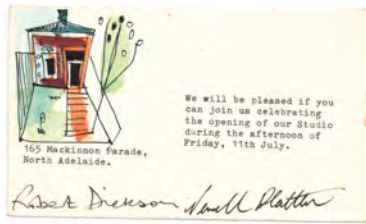 165 Mackinnon Parade,
North Adelaide.
We will be pleased if you
can join us celebrating
the opening of our Studio
during the afternoon of
Friday, 11th July.
Robert Dickson Newell Platten